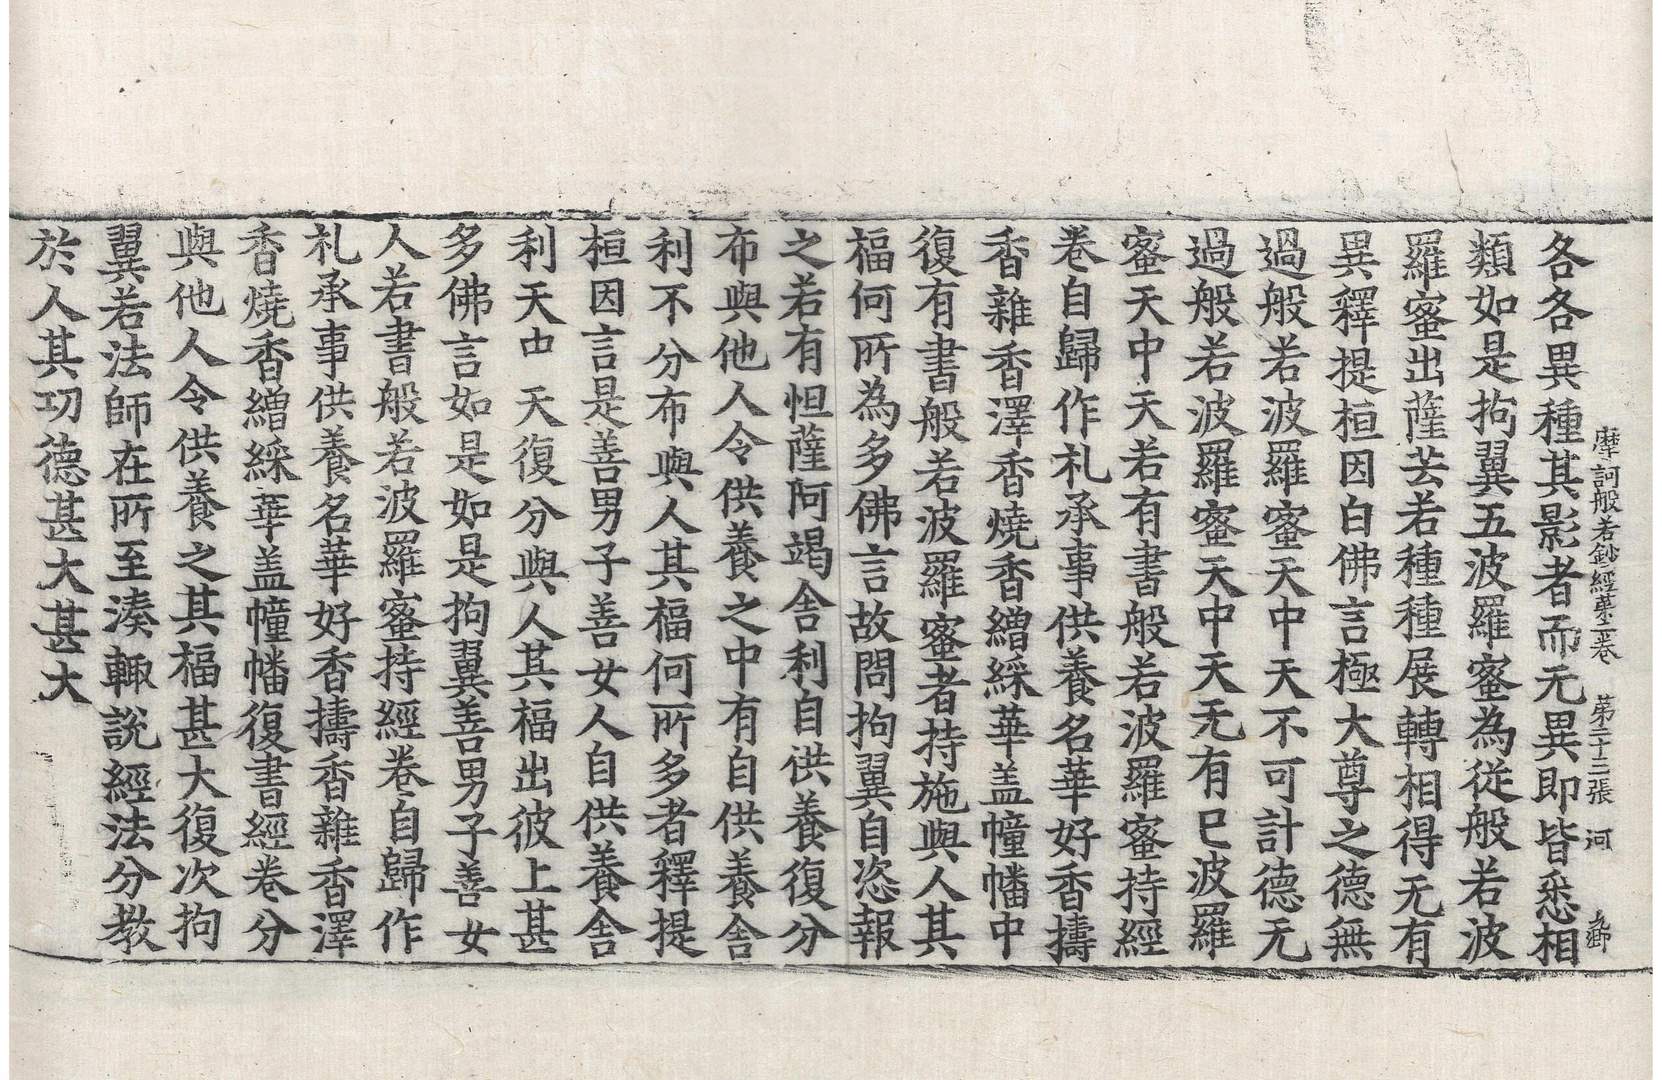 摩訶般若鈔經第二卷 第二十二張 河
各各異種其影者而无異即皆悉相
類如是拘翼五波羅蜜為從般若波
羅蜜出薩芸若種種展轉相得无有
異釋提桓因白佛言極大尊之德無
過般若波羅蜜天中天不可計德无
過般若波羅蜜天中天无有已波羅
蜜天中天若有書般若波羅蜜持經
卷自歸作礼承事供養名華好香擣
香雜香澤香燒香繒綵華盖幢幡中
復有書般若波羅蜜者持施與人其
福何所為多佛言故問拘翼自恣報
之若有怛薩阿竭舍利自供養復分
布與他人令供養之中有自供養舍
利不分布與人其福何所多者釋提
桓因言是善男子善女人自供養舍
利天中天復分與人其福出彼上甚
多佛言如是如是拘翼善男子善女
人若書般若波羅蜜持經卷自歸作
礼承事供養名華好香擣香雜香澤
香燒香繒綵華盖幢幡復書經卷分
與他人令供養之其福甚大復次拘
翼若法師在所至湊輙說經法分教
於人其功德甚大甚大